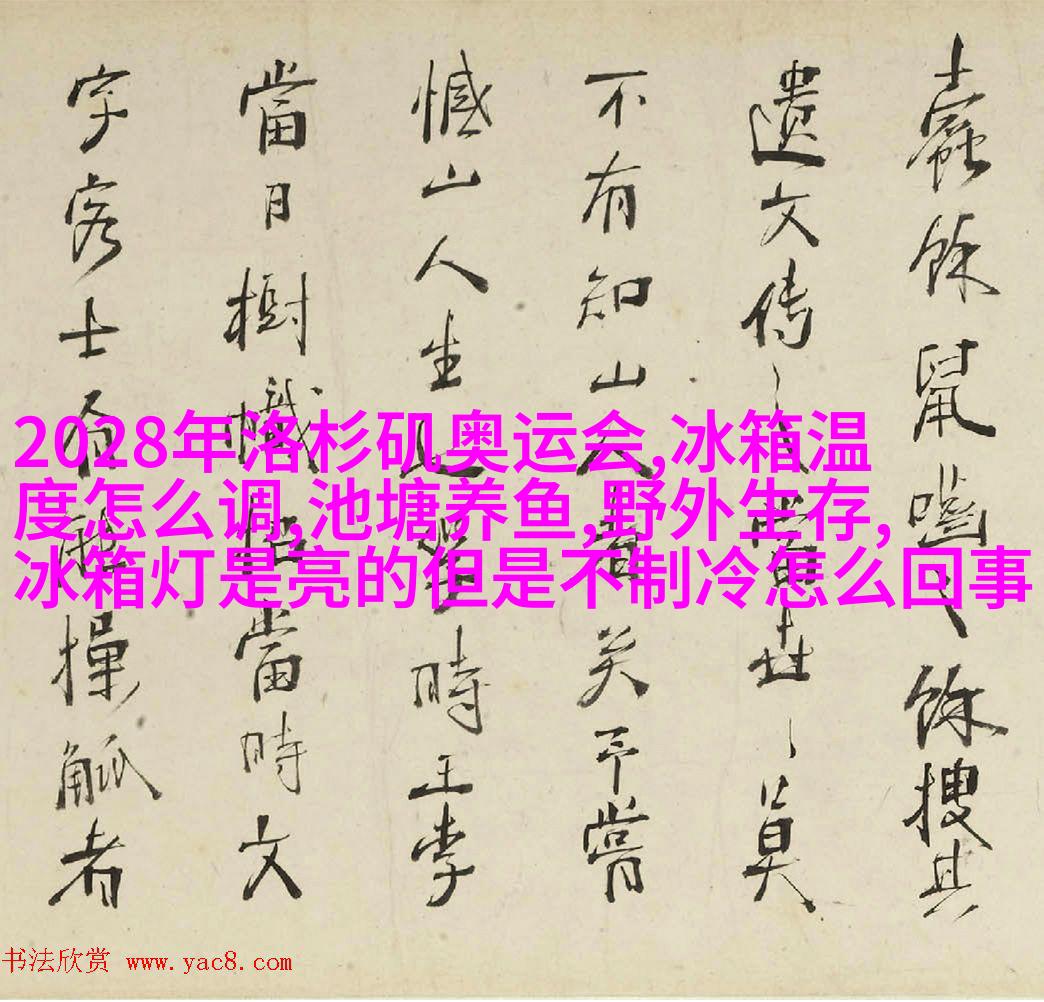 蠹餘鼠嚙之餘搜其
遺文傳之賞莊之莫
不有知山人者矣予嘗
憾山人生
時王李
當日樹幟
當時文
字客士
操觚者
2028年洛杉矶奥运会,冰箱温
度怎么调,池塘养鱼,野外生存,
冰箱灯是亮的但是不制冷怎么回事
书法欣赏 www.yac8.com